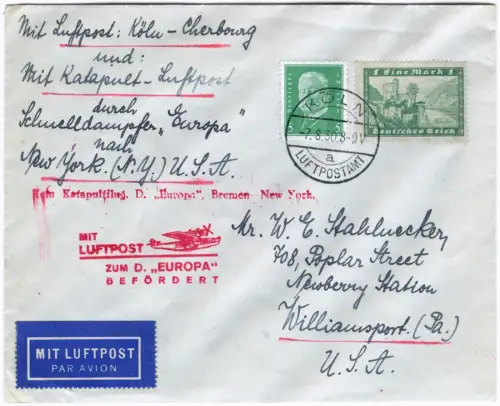 Mit Luftpost: Köln-Cherbourg
und:
Mit Katapult-Luftpost
durch
Schnelldampfer „Europa"
nach
New York. (N.Y.) U.S.A.
1 Eine Mark 1
Deutsches Reich
KÖLN
7.8.30.8-9V
a
LUFTPOSTAMT
Katapultflug. D. „Europa", Bremen-New York.
MIT
LUFTPOST
ZUM D. „EUROPA"
BEFÖRDERT
Mr. W. E. Stahlnecker,
708, Poplar Street
Newberry Station
Williamsport. (Pa.)
U.S.A.
MIT LUFTPOST
PAR AVION